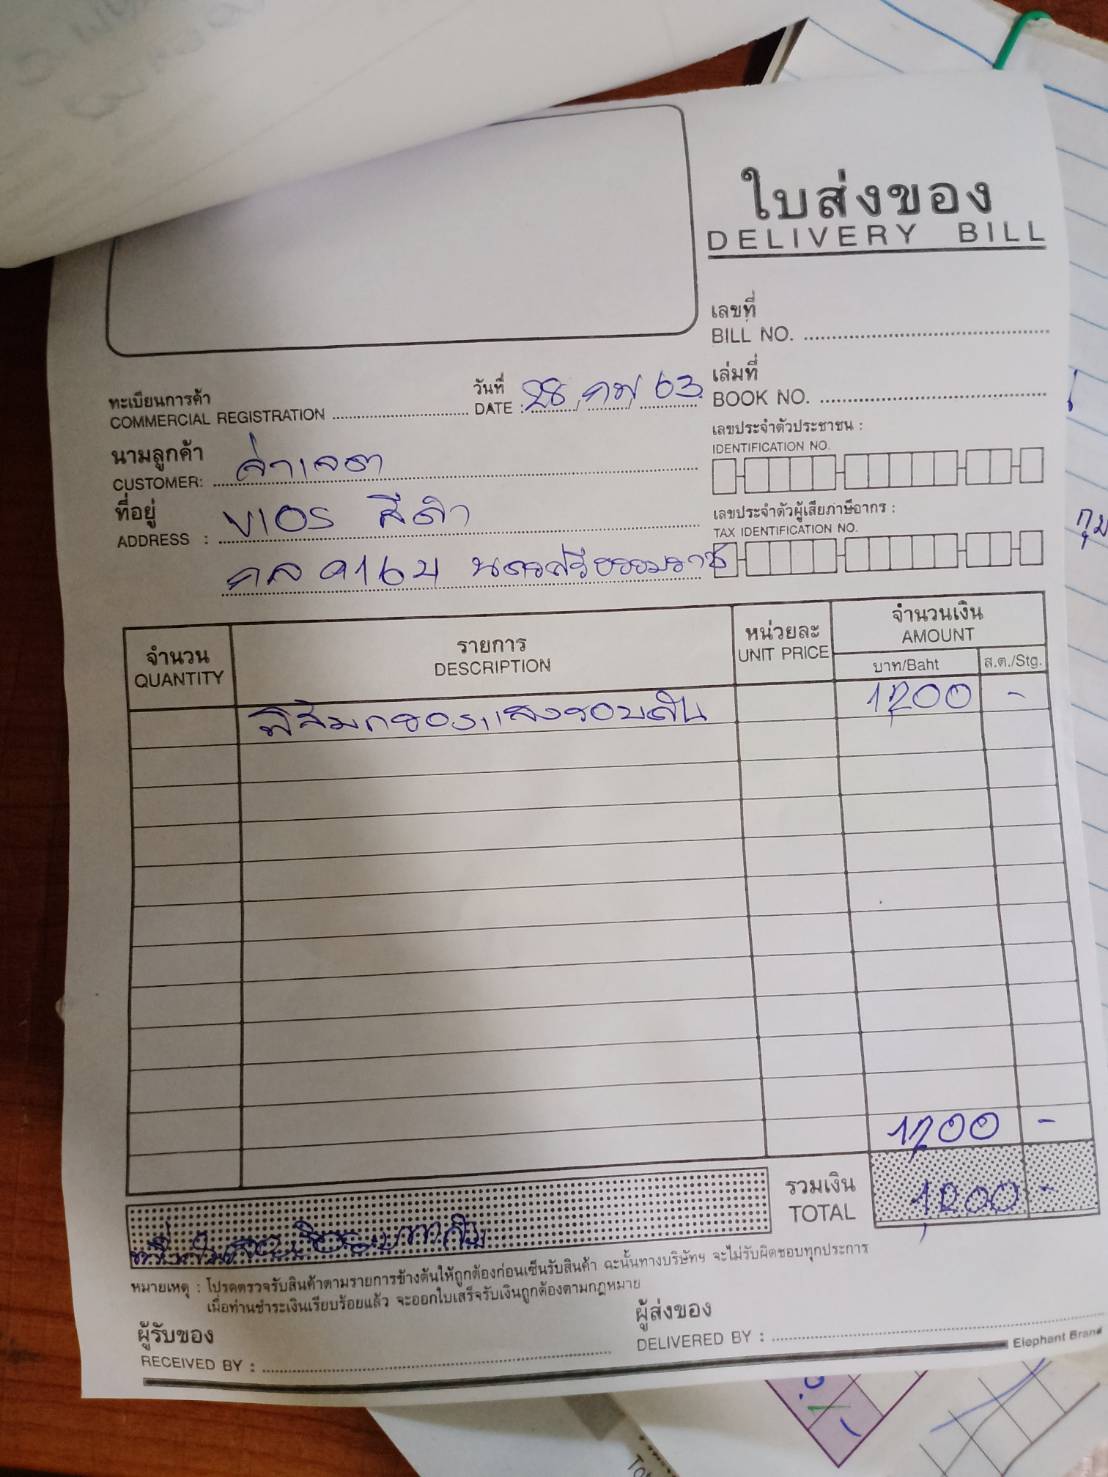 ใบส่งของ
DELIVERY BILL
เลขที่
BILL NO.
ทะเบียนการค้า
COMMERCIAL REGISTRATION
วันที่ 28 กพ 63
DATE :
เล่มที่
BOOK NO.
นามลูกค้า
CUSTOMER:
เลขประจำตัวประชาชน :
IDENTIFICATION NO.
ที่อยู่
ADDRESS : VIOS สีดำ
เลขประจำตัวผู้เสียภาษีอากร :
TAX IDENTIFICATION NO.
นครศรีธรรมราช
จำนวน
QUANTITY
รายการ
DESCRIPTION
หน่วยละ
UNIT PRICE
จำนวนเงิน
AMOUNT
บาท/Baht
ส.ต./Stg.
ฟิล์มกรองแสงรอบคัน 1,200 -
1,200 -
รวมเงิน
TOTAL
1,200 -
หนึ่งพันสองร้อยบาทถ้วน
หมายเหตุ : โปรดตรวจรับสินค้าตามรายการข้างต้นให้ถูกต้องก่อนเซ็นรับสินค้า ฉะนั้นทางบริษัทฯ จะไม่รับผิดชอบทุกประการ
เมื่อท่านชำระเงินเรียบร้อยแล้ว จะออกใบเสร็จรับเงินถูกต้องตามกฎหมาย
ผู้รับของ
RECEIVED BY :
ผู้ส่งของ
DELIVERED BY :
Elephant Brand